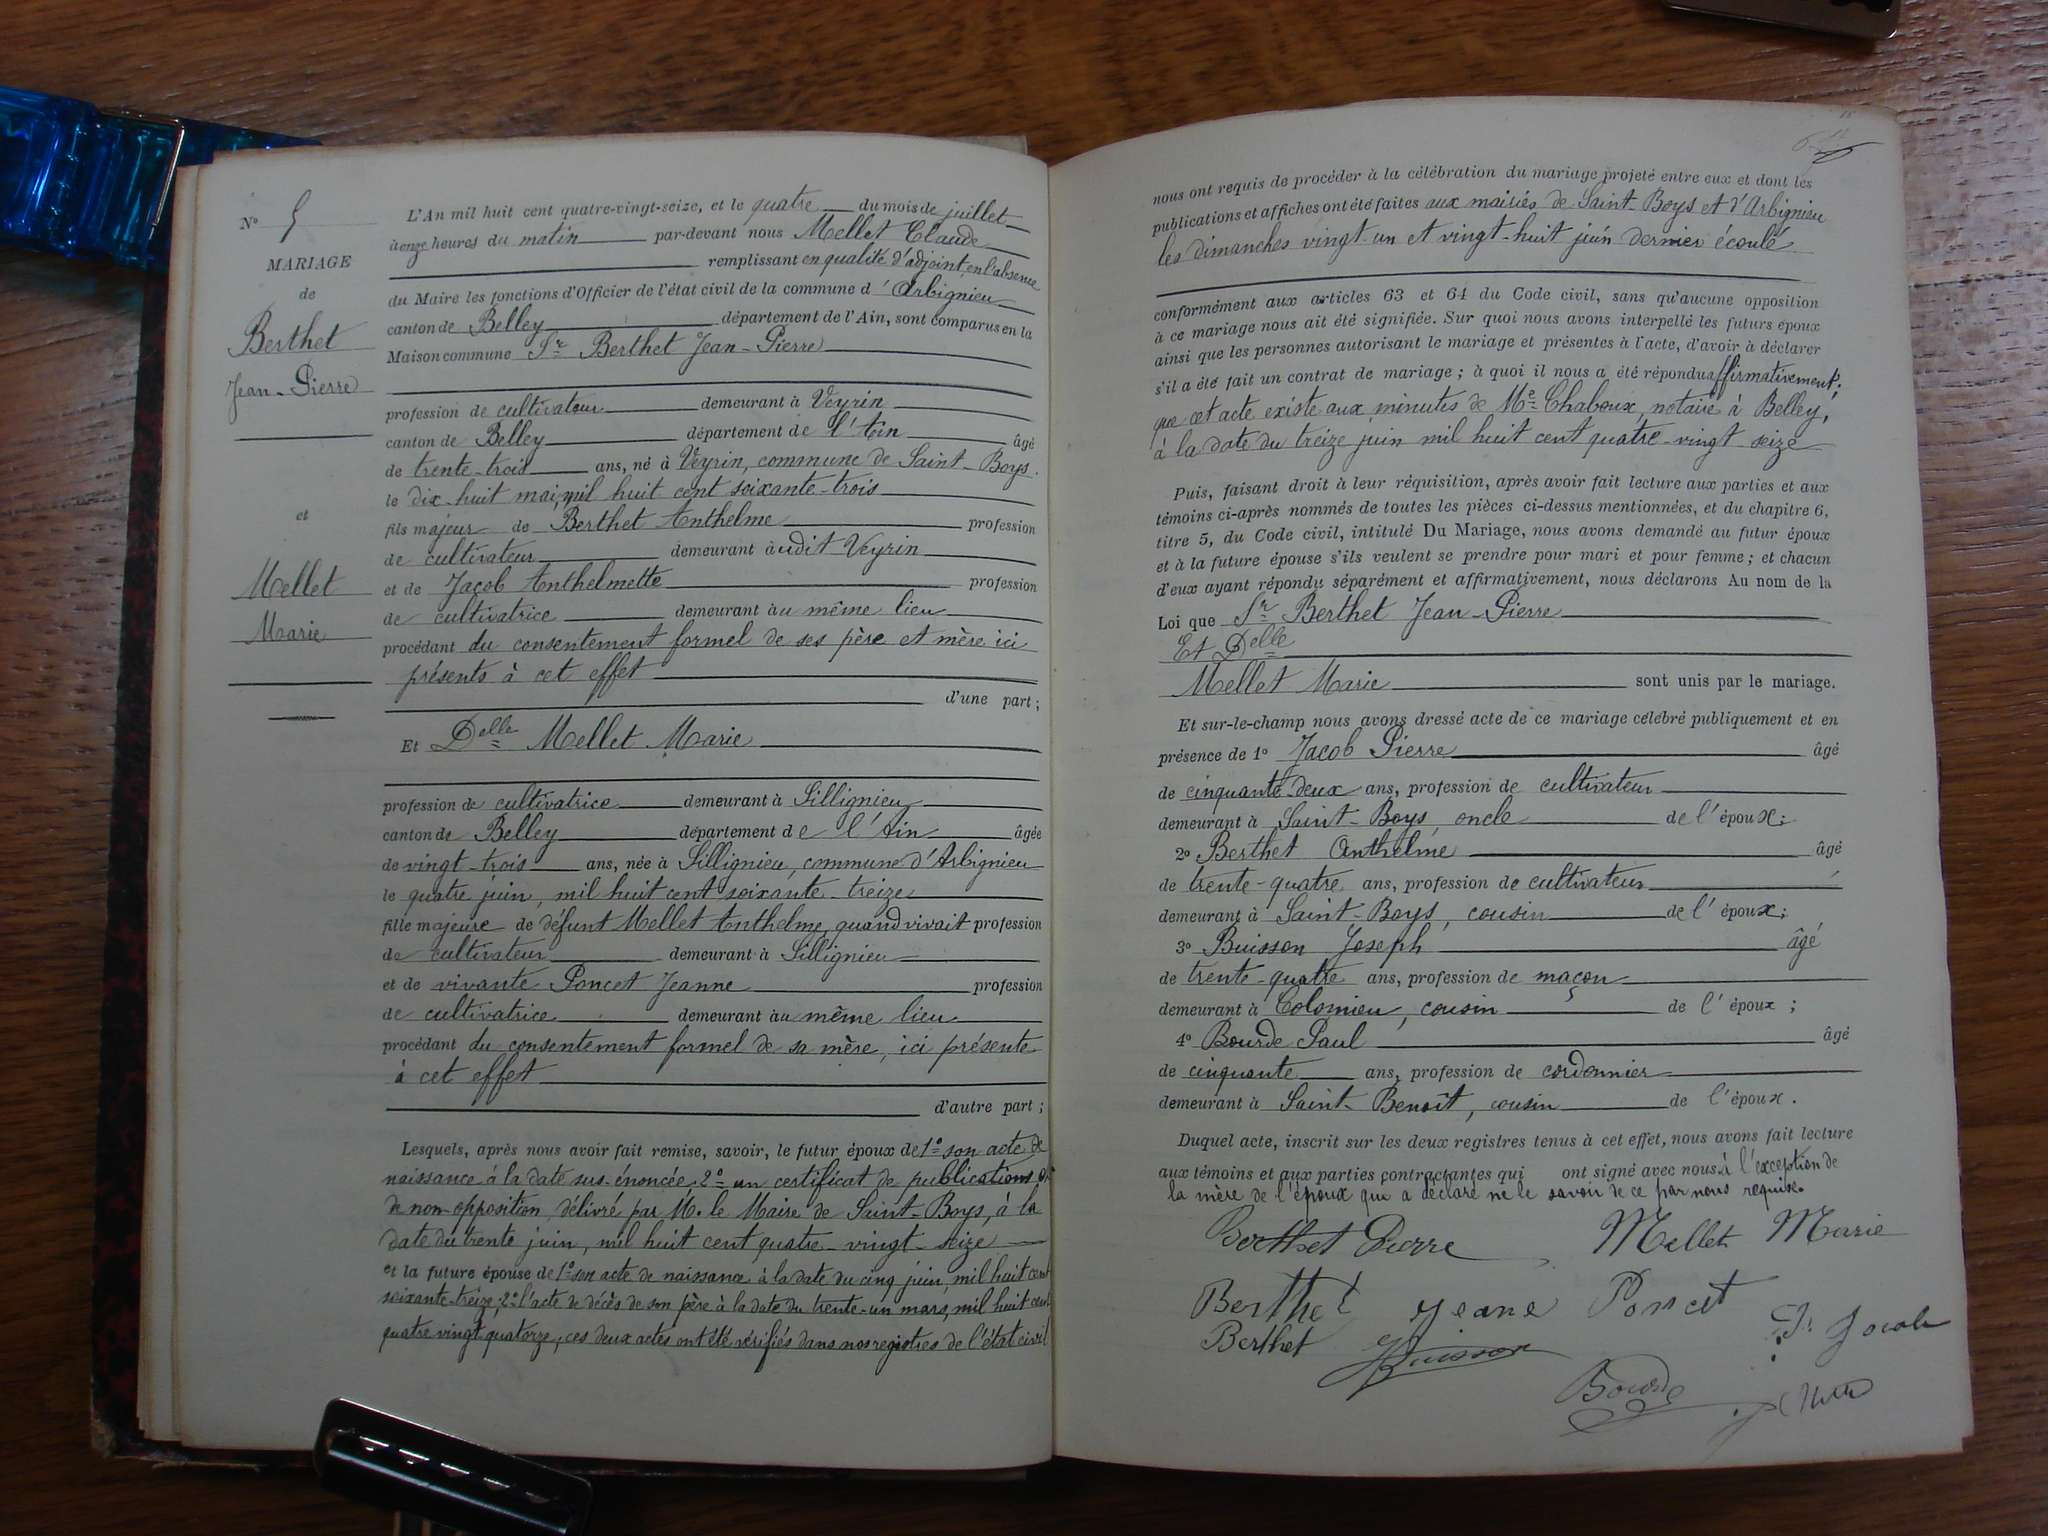 N° 5
MARIAGE
de
Berthet
Jean-Pierre
et
Mellet
Marie
L'An mil huit cent quatre-vingt-seize, et le quatre du mois de juillet
à onze heures du matin par-devant nous Mellet Claude
remplissant en qualité d'adjoint, en l'absence
du Maire les fonctions d'Officier de l'état civil de la commune d'Arbignieu
canton de Belley département de l'Ain, sont comparus en la
Maison commune Sr Berthet Jean-Pierre
profession de cultivateur demeurant à Veyrin
canton de Belley département de l'Ain âgé
de trente-trois ans, né à Veyrin, commune de Saint-Boys.
le dix-huit mai, mil huit cent soixante-trois
fils majeur de Berthet Anthelme profession
de cultivateur demeurant audit Veyrin
et de Jacob Anthelmette profession
de cultivatrice demeurant au même lieu
procédant du consentement formel de ses père et mère ici
présents à cet effet
d'une part ;
Et Delle Mellet Marie
profession de cultivatrice demeurant à Sillignieu
canton de Belley département de l'Ain âgée
de vingt-trois ans, née à Sillignieu, commune d'Arbignieu
le quatre juin, mil huit cent soixante-treize
fille majeure de défunt Mellet Anthelme, quand vivait profession
de cultivateur demeurant à Sillignieu
et de vivante Poncet Jeanne profession
de cultivatrice demeurant au même lieu
procédant du consentement formel de sa mère, ici présente
à cet effet
d'autre part ;
Lesquels, après nous avoir fait remise, savoir, le futur époux de 1° son acte de
naissance à la date sus-énoncée 2° un certificat de publications et
de non-opposition, délivré par M. le Maire de Saint-Boys, à la
date du trente juin, mil huit cent quatre-vingt-seize
et la future épouse de 1° son acte de naissance à la date du cinq juin, mil huit cent
soixante-treize; 2° l'acte de décès de son père à la date du trente-un mars, mil huit cent
quatre vingt quatorze, ces deux actes ont été vérifiés dans nos registres de l'état civil
nous ont requis de procéder à la célébration du mariage projeté entre eux et dont les
publications et affiches ont été faites aux mairies de Saint-Boys et d'Arbignieu
les dimanches vingt-un et vingt-huit juin dernier écoulé
conformément aux articles 63 et 64 du Code civil, sans qu'aucune opposition
à ce mariage nous ait été signifiée. Sur quoi nous avons interpellé les futurs époux
ainsi que les personnes autorisant le mariage et présentes à l'acte, d'avoir à déclarer
s'il a été fait un contrat de mariage ; à quoi il nous a été répondu affirmativement;
que cet acte existe aux minutes de Me Chaboux, notaire à Belley,
à la date du treize juin mil huit cent quatre-vingt-seize
Puis, faisant droit à leur réquisition, après avoir fait lecture aux parties et aux
témoins ci-après nommés de toutes les pièces ci-dessus mentionnées, et du chapitre 6,
titre 5, du Code civil, intitulé Du Mariage, nous avons demandé au futur époux
et à la future épouse s'ils veulent se prendre pour mari et pour femme ; et chacun
d'eux ayant répondu séparément et affirmativement, nous déclarons Au nom de la
Loi que Sr Berthet Jean-Pierre
Et Delle
Mellet Marie sont unis par le mariage.
Et sur-le-champ nous avons dressé acte de ce mariage célébré publiquement et en
présence de 1° Jacob Pierre âgé
de cinquante deux ans, profession de cultivateur
demeurant à Saint-Boys, oncle de l'époux;
2° Berthet Anthelme âgé
de trente-quatre ans, profession de cultivateur
demeurant à Saint-Boys, cousin de l'époux;
3° Buisson Joseph âgé
de trente-quatre ans, profession de maçon
demeurant à Colomieu, cousin de l'époux ;
4° Bourde Paul âgé
de cinquante ans, profession de cordonnier
demeurant à Saint-Benoît, cousin de l'époux.
Duquel acte, inscrit sur les deux registres tenus à cet effet, nous avons fait lecture
aux témoins et aux parties contractantes qui ont signé avec nous à l'exception de
la mère de l'époux qui a déclaré ne le savoir de ce par nous requise.
Berthet Pierre Mellet Marie
Berthet Jeane Poncet
Berthet Buisson Jacob
Bourde